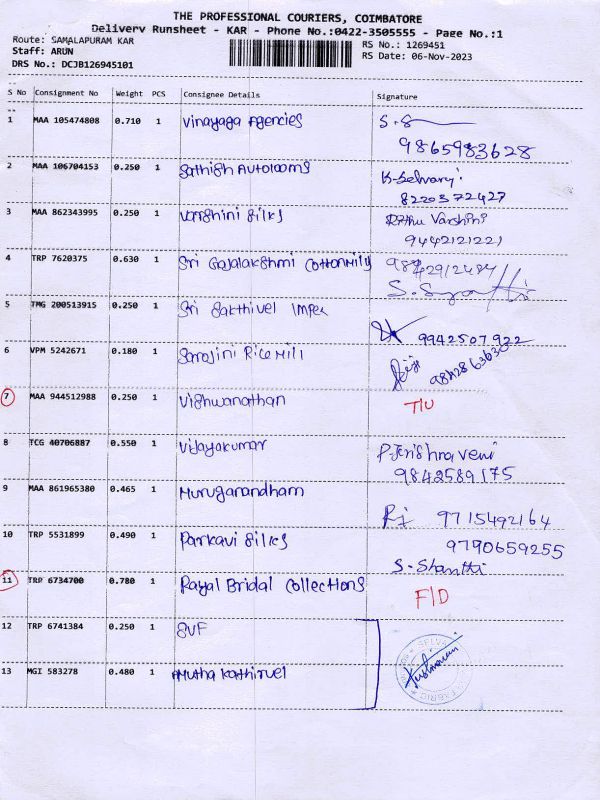 THE PROFESSIONAL COURIERS, COIMBATORE
Delivery Runsheet - KAR - Phone No.:0422-3505555 - Page No.:1
Route: SAMALAPURAM KAR
RS No.: 1269451
Staff: ARUN
RS Date: 06-Nov-2023
DRS No.: DCJB126945101
S No Consignment No Weight PCS Consignee Details Signature
1 MAA 105474808 0.710 1 Vinayaga Agencies
9865983628
2 MAA 106704153 0.250 1 Sathish Autolooms K-Selvaryi
8220372427
3 MAA 862343995 0.250 1 Varshini Silks Rithu Varshini
9442121221
4 TRP 7620375 0.630 1 Sri Gajalakshmi Cottonmills
5 TMG 200513915 0.250 1 Sri Sakthivel Impex
9942507922
6 VPM 5242671 0.180 1 Sarojini Rice Mill
7 MAA 944512988 0.250 1 Vishwanathan T/U
8 TCG 40706887 0.550 1 Vijayakumar
9842589175
9 MAA 861965380 0.465 1 Muruganandham
9715492164
10 TRP 5531899 0.490 1 Parkavi Silks 9790659255
S-Shanthi
11 TRP 6734700 0.780 1 Rayal Bridal Collections F/D
12 TRP 6741384 0.250 1 SVF
13 MGI 583278 0.480 1 Mutha Kathirvel